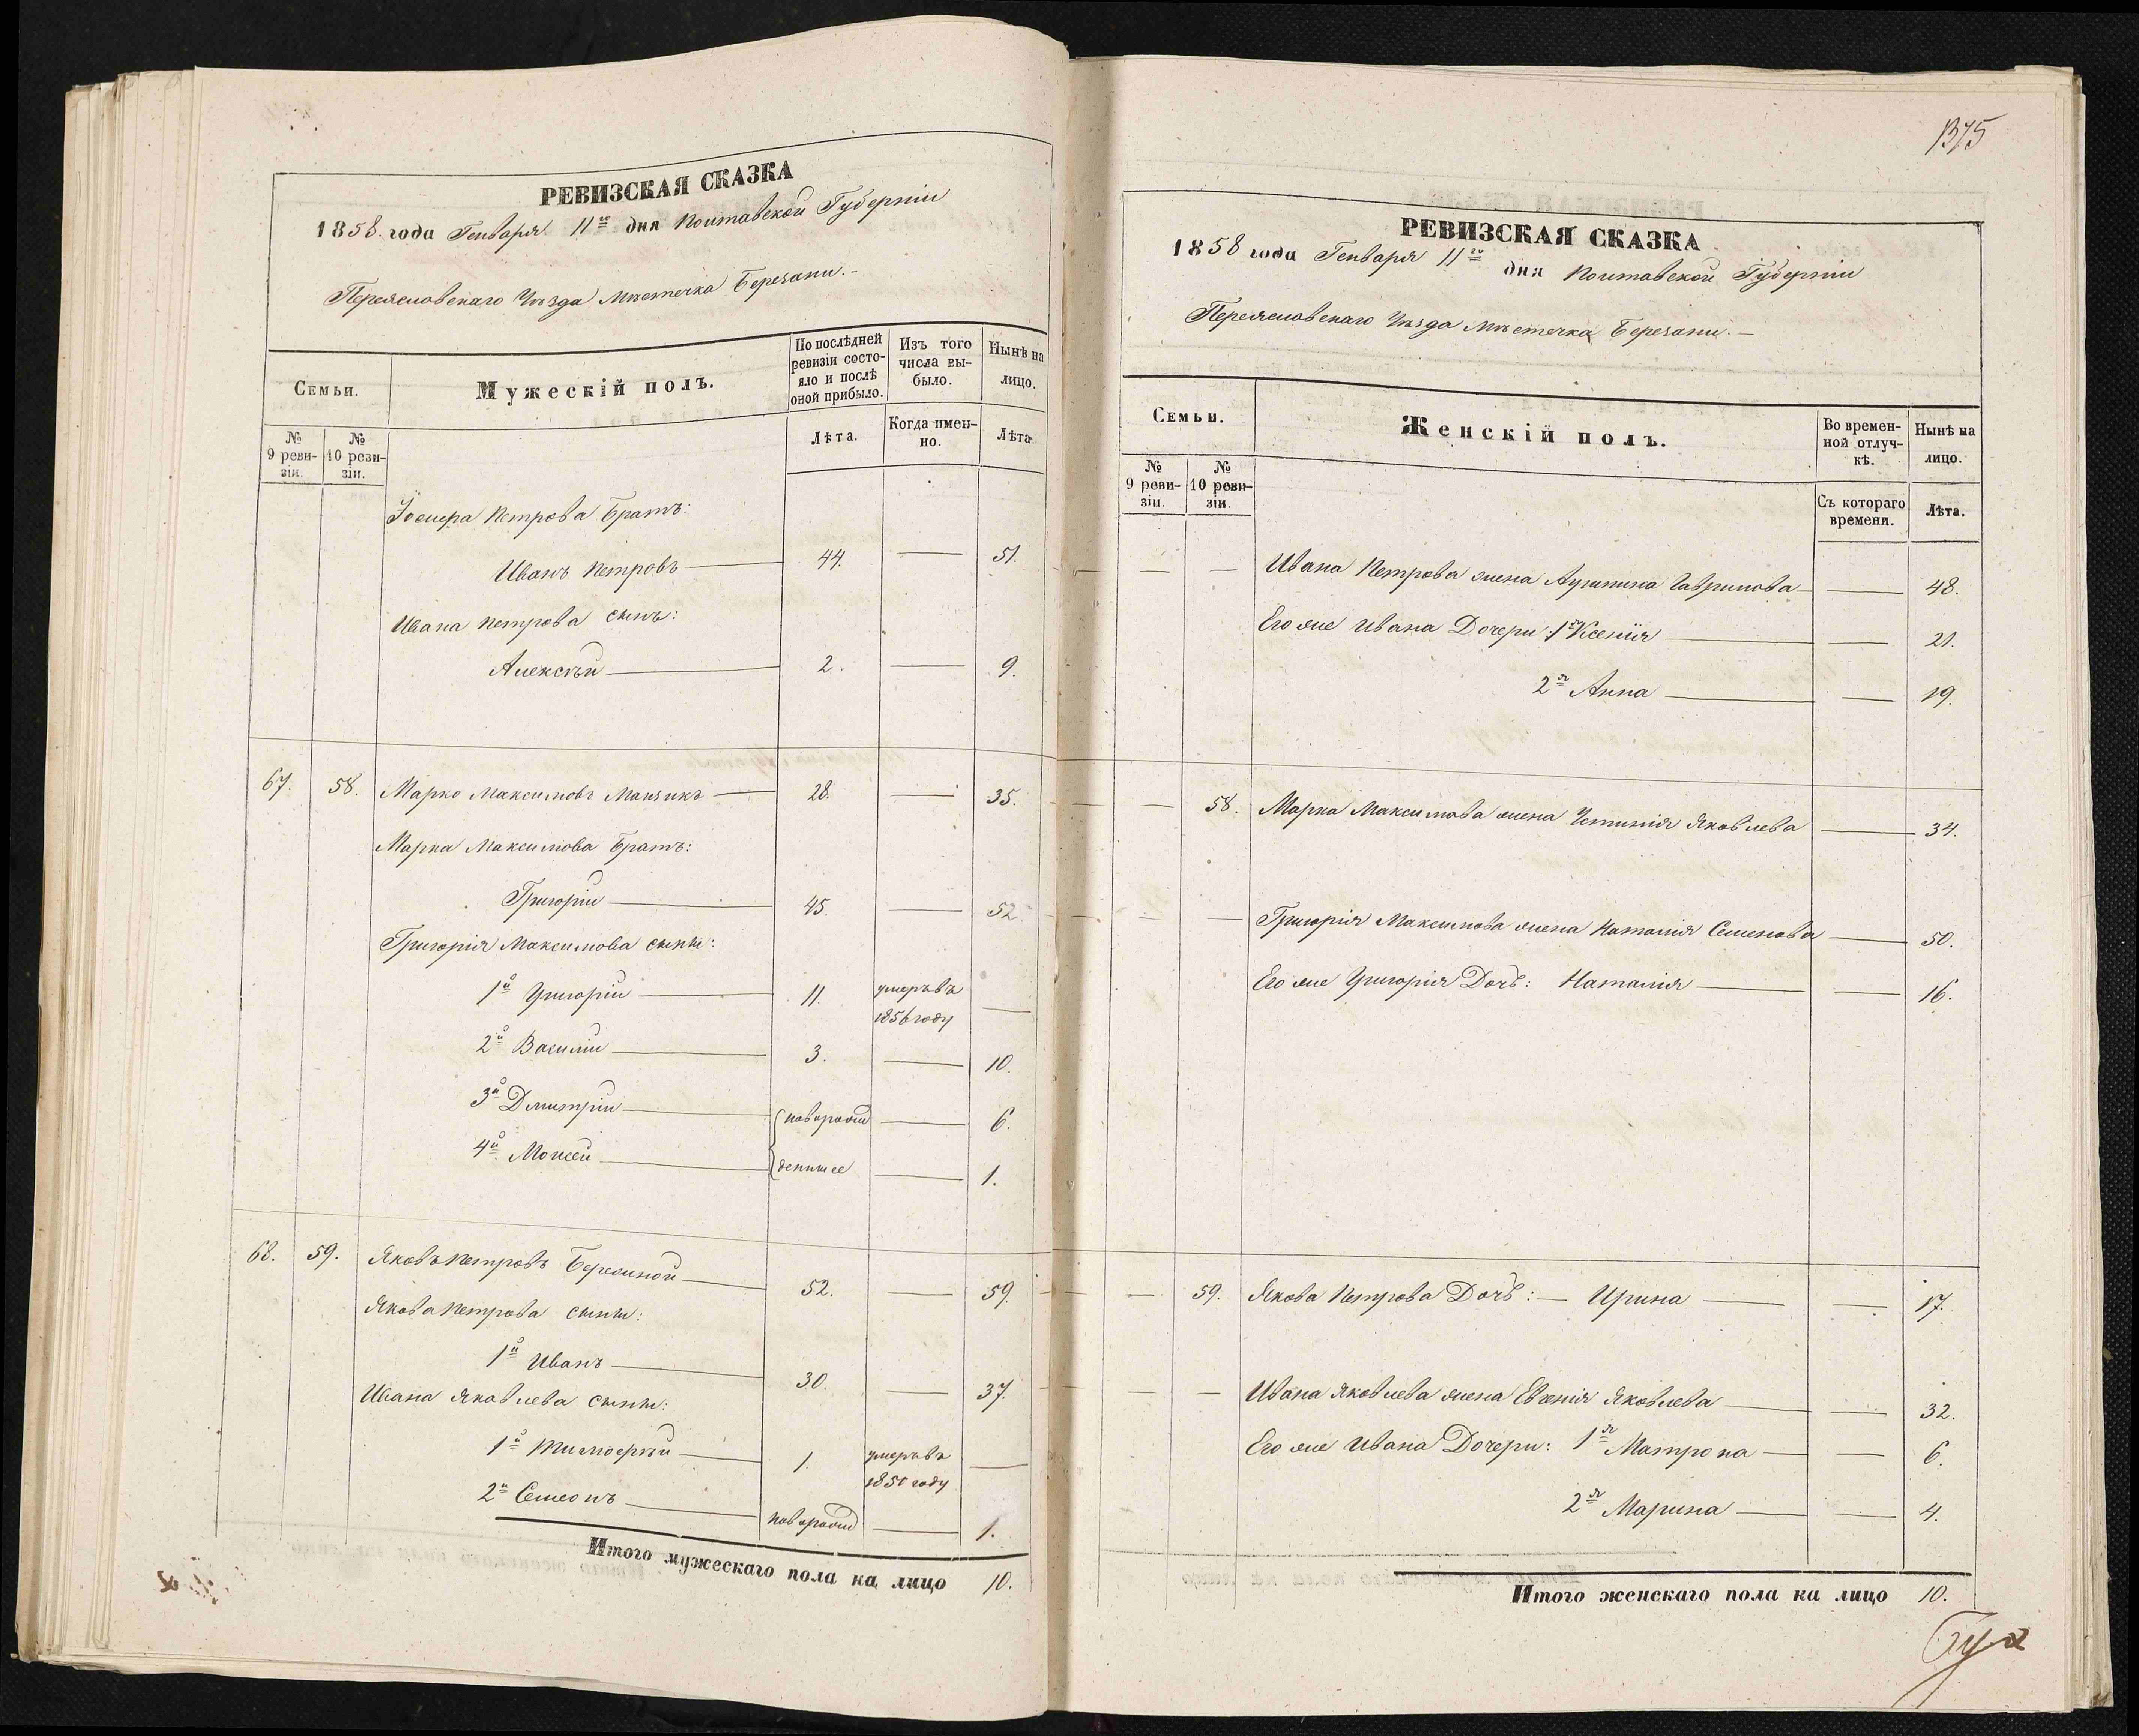 РЕВИЗСКАЯ СКАЗКА
1858 года Генваря 11го дня Полтавской Губерніи
Переяславскаго Уѣзда Мѣстечка Березани.
Семьи.
Мужескій полъ.
По послѣдней ревизіи состояло и послѣ оной прибыло.
Изъ того числа выбыло.
Нынѣ на лицо.
№ 9 ревизіи.
№ 10 ревизіи.
Лѣта.
Когда именно.
Лѣта
Іосифа Петрова Братъ:
Иванъ Петровъ 44. — 51.
Ивана Петрова сынъ:
Алексѣй 2. — 9.
67. 58. Марко Максимовъ 28. — 35.
Марка Максимова Братъ:
Григорій 45. — 52.
Григорія Максимова сыны:
1й Григорій 11. умеръ въ —
1856 году
2й Василій 3. — 10.
3й Дмитрій новорож — 6.
4й Моисей денные — 1.
68. 59. Яковъ Петровъ 52. — 59.
Якова Петрова сыны:
1й Иванъ 30. — 37.
Ивана Яковлева сыны:
1й Тимофей 1. умеръ въ —
году
2й Семеонъ новорожд — 1.
Итого мужескаго пола на лицо 10.
1375
РЕВИЗСКАЯ СКАЗКА
1858 года Генваря 11го дня Полтавской Губерніи
Переяславскаго Уѣзда Мѣстечка Березани.
Семьи.
Женскій полъ.
Во временной отлучкѣ.
Нынѣ на лицо.
№ 9 ревизіи.
№ 10 ревизіи.
Съ котораго времени.
Лѣта.
— — Ивана Петрова жена Гаврилова — 48.
Его же Ивана Дочери: 1я Ксенія — 21.
2я Анна — 19.
— 58. Марка Максимова жена Устинія Яковлева — 34.
— — Григорія Максимова жена Наталія Семенова — 50.
Его же Григорія Дочь: Наталія — 16.
— 59. Якова Петрова Дочь: — Ирина — 17.
— — Ивана Яковлева жена Евгенія Яковлева — 32.
Его же Ивана Дочери: 1я Матрона — 6.
2я Марина — 4.
Итого женскаго пола на лицо 10.